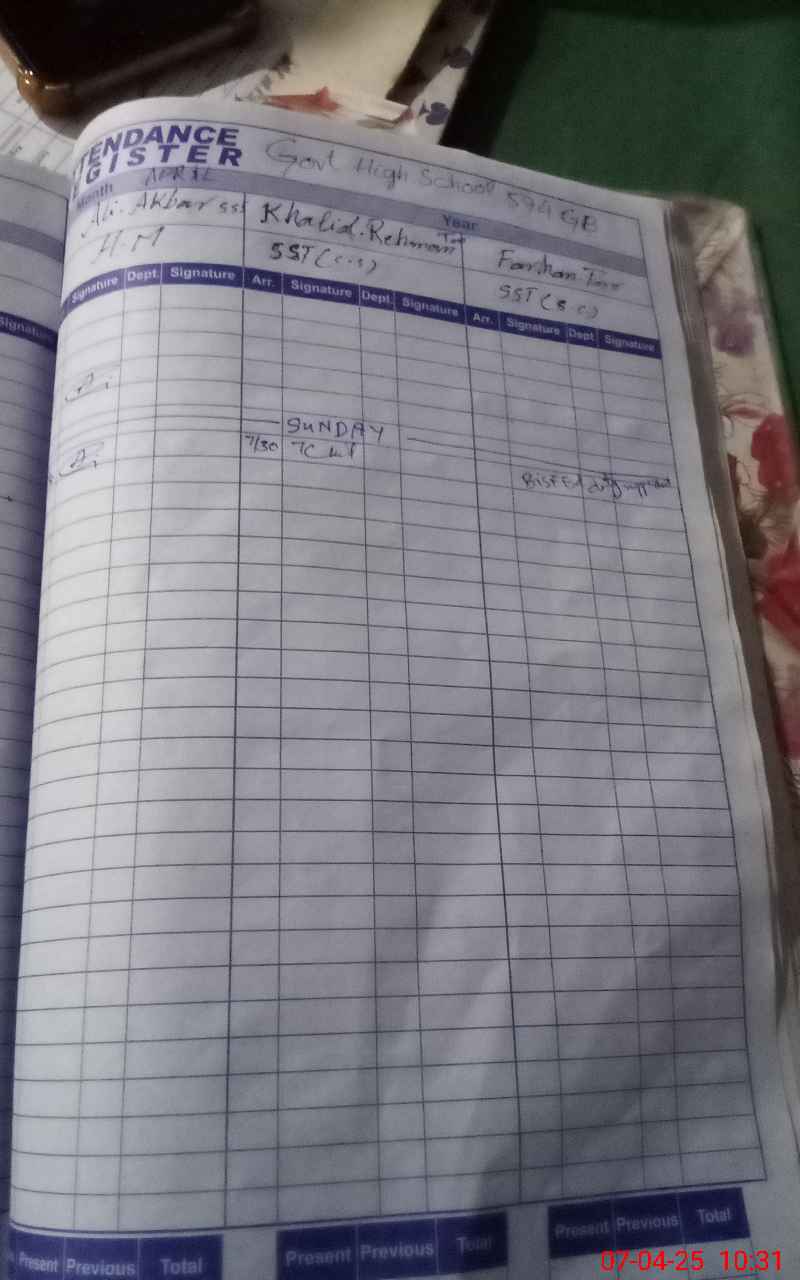 ATTENDANCE
REGISTER
Govt High School 594 GB
Month APRIL
Year
Ali Akbar SST
H.M
Khalid Rehman
SST (C.S)
Farhan
SST (S.C)
Signature Dept. Signature Arr. Signature Dept. Signature Arr. Signature Dept. Signature
Signature
SUNDAY
7/30
Present Previous Total Present Previous Total Present Previous Total
07-04-25 10:31